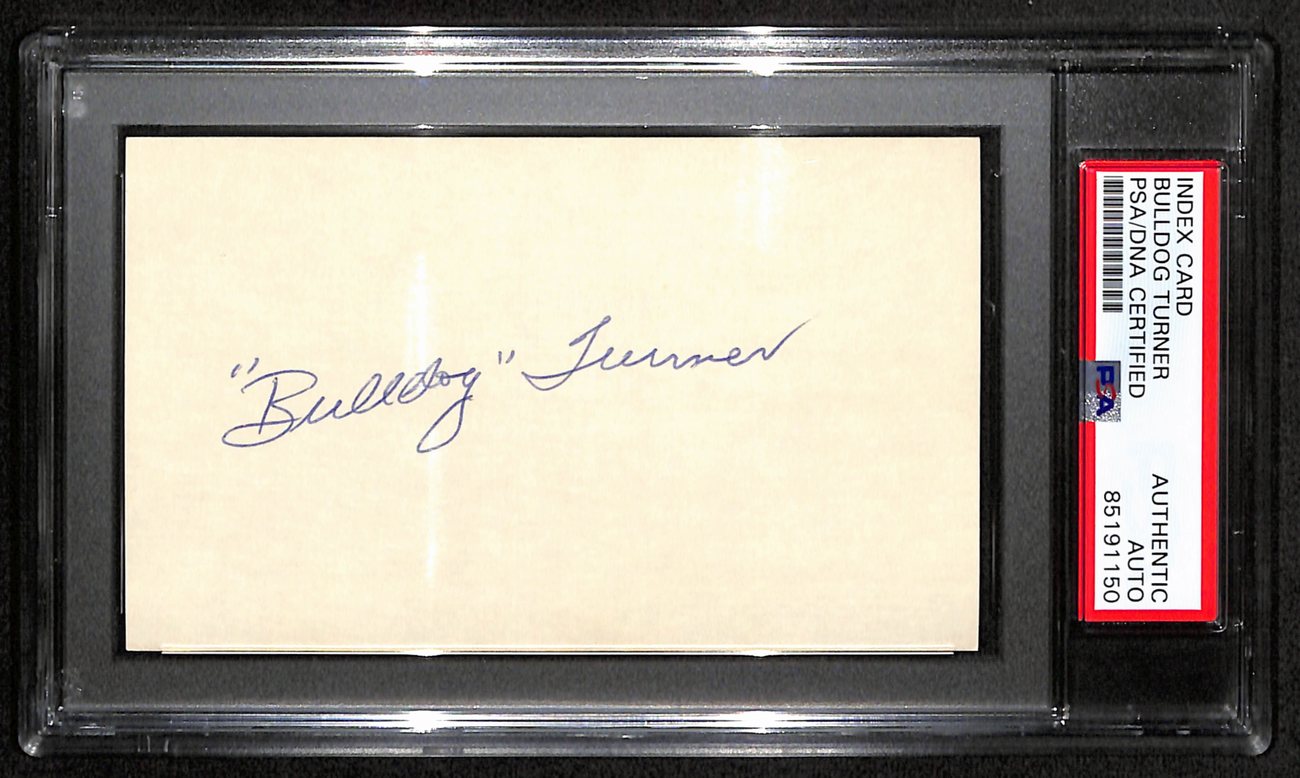 "Bulldog" Turner
INDEX CARD
BULLDOG TURNER
PSA/DNA CERTIFIED
PSA
AUTHENTIC
AUTO
85191150